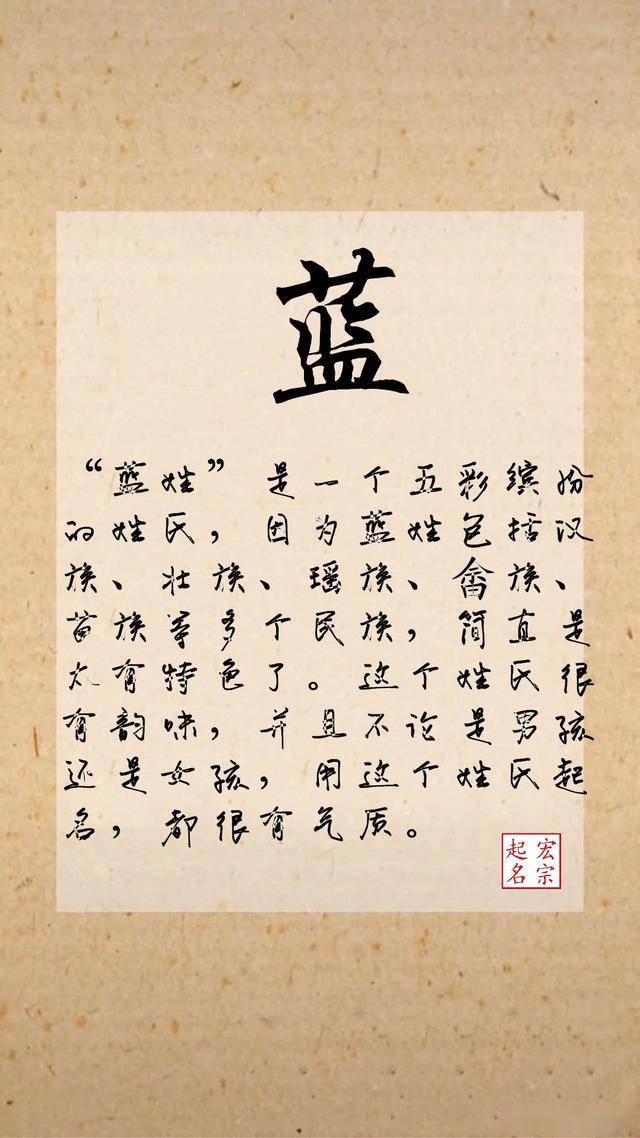 蓝
“蓝姓”是一个五彩缤纷
的姓氏，因为蓝姓包括汉
族、壮族、瑶族、畲族、
苗族等多个民族，简直是
太有特色了。这个姓氏很
有韵味，并且不论是男孩
还是女孩，用这个姓氏起
名，都很有气质。
宏宗
起名